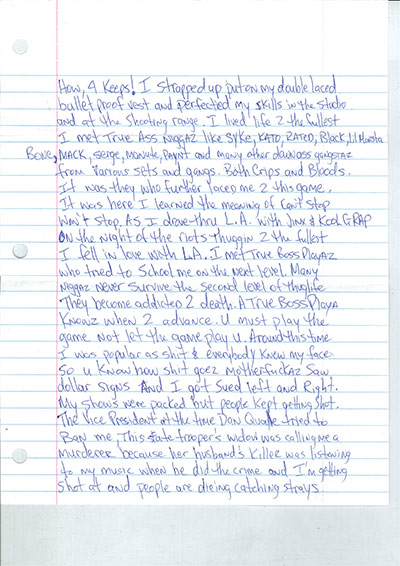 How, 4 Keeps! I strapped up put on my double laced
bullet proof vest and perfected my skills in the studio
and at the shooting range. I lived life 2 the fullest
I met True Ass Niggaz like Syke, KATO, RATED, Black, Lil Monsta
Bone, MACK, Serge, MONUTE, and many other downass gangstaz
from various sets and gangs. Both Crips and Bloods.
It was they who further laced me 2 this game.
It was here I learned the meaning of Can't Stop
Won't stop. As I drove thru L.A. with Jinx & Kool G RAP
ON the Night of the riots thuggin 2 the fullest
I fell in love with L.A. I met True Boss PlayAz
who tried to School me on the Next level. Many
Niggaz never survive the second level of thuglife
They become addicted 2 death. A True Boss Playa
Knowz when 2 advance. U must play the
game not let the game play U. Around this time
I was popular as shit & everybody knew my face
So u know how shit goez MotherfuckAz saw
dollar signs And I got Sued left and Right.
My Shows were packed but people kept getting shot.
The Vice President at the time Dan Quale tried to
Ban me. This State trooper's widow was calling me a
murderer because her husband's killer was listening
to my music when he did the crime and I'm getting
shot at and people are dieing catching strays